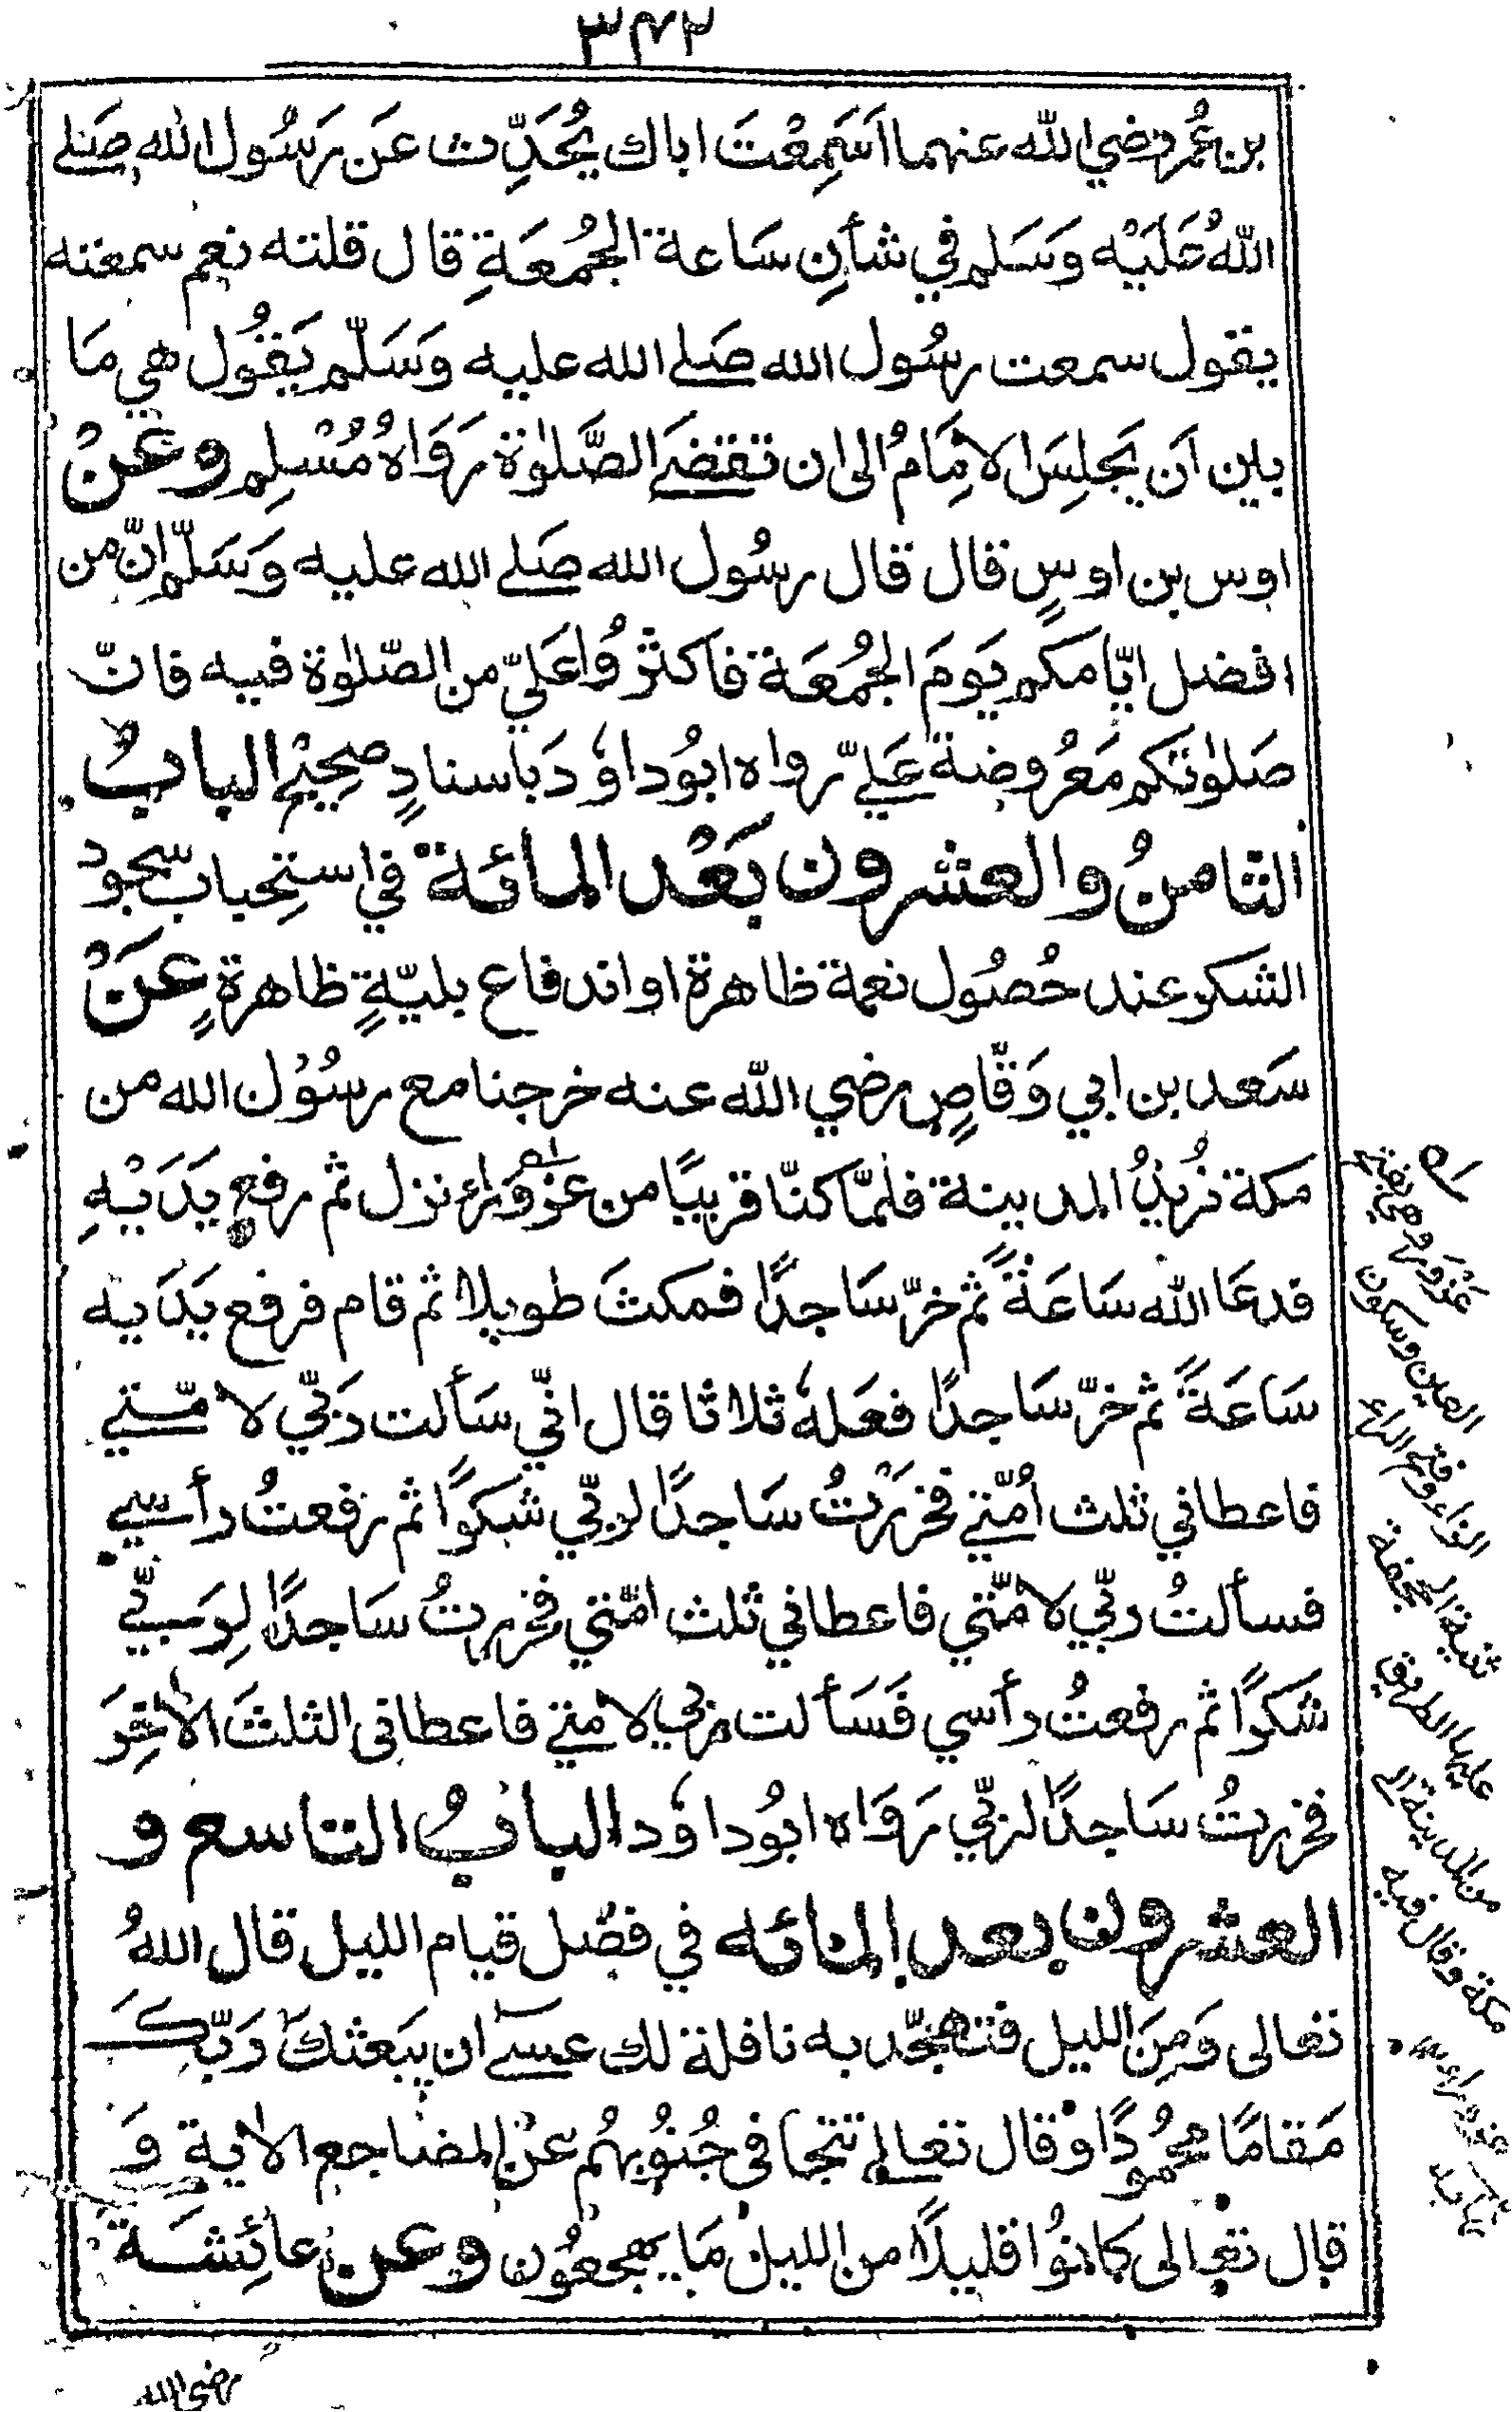 ٣٤٢
بن عُمر رضي الله عنهما اَسَمِعْتَ اباك يُحَدِّث عَن رَسُول الله صَلے
اللهُ عَلَيْه وَسَلم في شأنِ سَاعة الجُمُعَةِ قال قلته نعم سمعته
يقول سمعت رسُول الله صَلے الله عليه وَسَلّم يَقُول هي مَا
بين اَن يَجلِسَ الامَامُ الى ان تقضےَ الصَّلوٰة رَوَاهُ مُسْلِم وعَنْ
اوس بن اوسٍ قال قال رسُول الله صَلے الله عليه وَسَلّم اِنّ من
افضل ايّامكم يَومَ الجُمُعَة فاكثرُوْا عَليّ من الصّلوٰة فيه فانّ
صَلوٰتكم مَعْروضة عَلےّ رواه ابُوداوٗد باسنادٍ صحِيْح البابُ
الثامنُ والعشرون بَعْد المائة في استِحباب سجود
الشكر عند حُصُول نعمة ظاهرة او اندفاع بليّةٍ ظاهرةٍ عَنْ
سَعد بن ابي وَقّاصٍ رضي الله عنه خرجنا مع رسُوْل الله من
مكة نُريْدُ المدينة فلمّا كنّا قريبًا من عَزْوَراء نزل ثم رفع يَدَيْهِ
فدعَا الله سَاعَةً ثم خرّ سَاجدًا فمكثَ طويلا ثم قام فرفع يَدَيه
سَاعَةً ثم خرّ سَاجدًا فعَلهٗ ثلاثا قال انّي سَألت رَبّي لامّتے
فاعطاني ثلث اُمّتے فخرَرْتُ سَاجدًا لربّي شكرًا ثم رفعتُ رأسي
فسألتُ ربّي لامّتي فاعطاني ثلث امّتي فخررتُ سَاجدًا لِرَبّي
شكرًا ثم رفعتُ رأسي فَسَألت ربي لامتے فاعطانى الثلثَ الاٰخِرَ
فخررتُ سَاجدًا لربّي رَوَاه ابُوداوٗد البابُ التاسع و
العشرون بعد المائه في فضل قيام الليل قال اللهُ
تعالى وَمِنَ الليل فتهجّد به نافلة لك عسےٰ ان يبَعثك رَبّك
مَقامًا محمُودًا وَقال تعالےٰ تتجافى جُنُوبهُم عَنِ المضاجع الاٰية وَ
قال تعالى كانوُا قليلًا من الليل مَا يهجعُون وعن عائِشَة
عَزْوَراء هي بفتح
العين وسكون
الزاء وفتح الراء
ثنية الجحفة
عليها الطريق
من المدينة الى
مكة وقال فيه
رضي الله